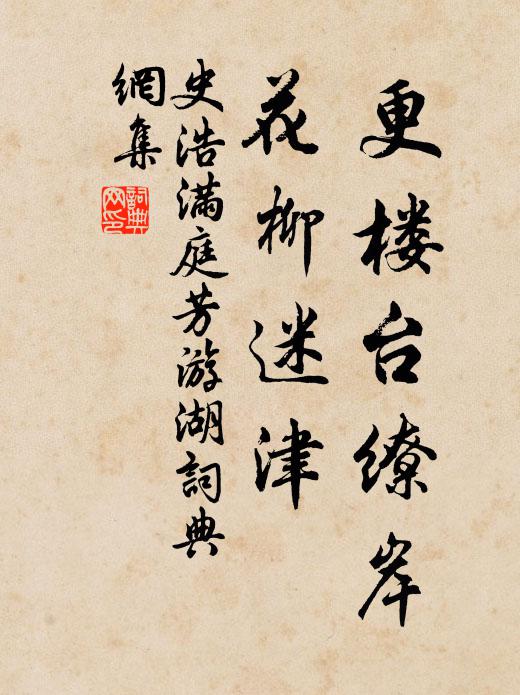 更楼台缭岸
花柳迷津
史浩满庭芳游湖詞典
網集
詞典網印